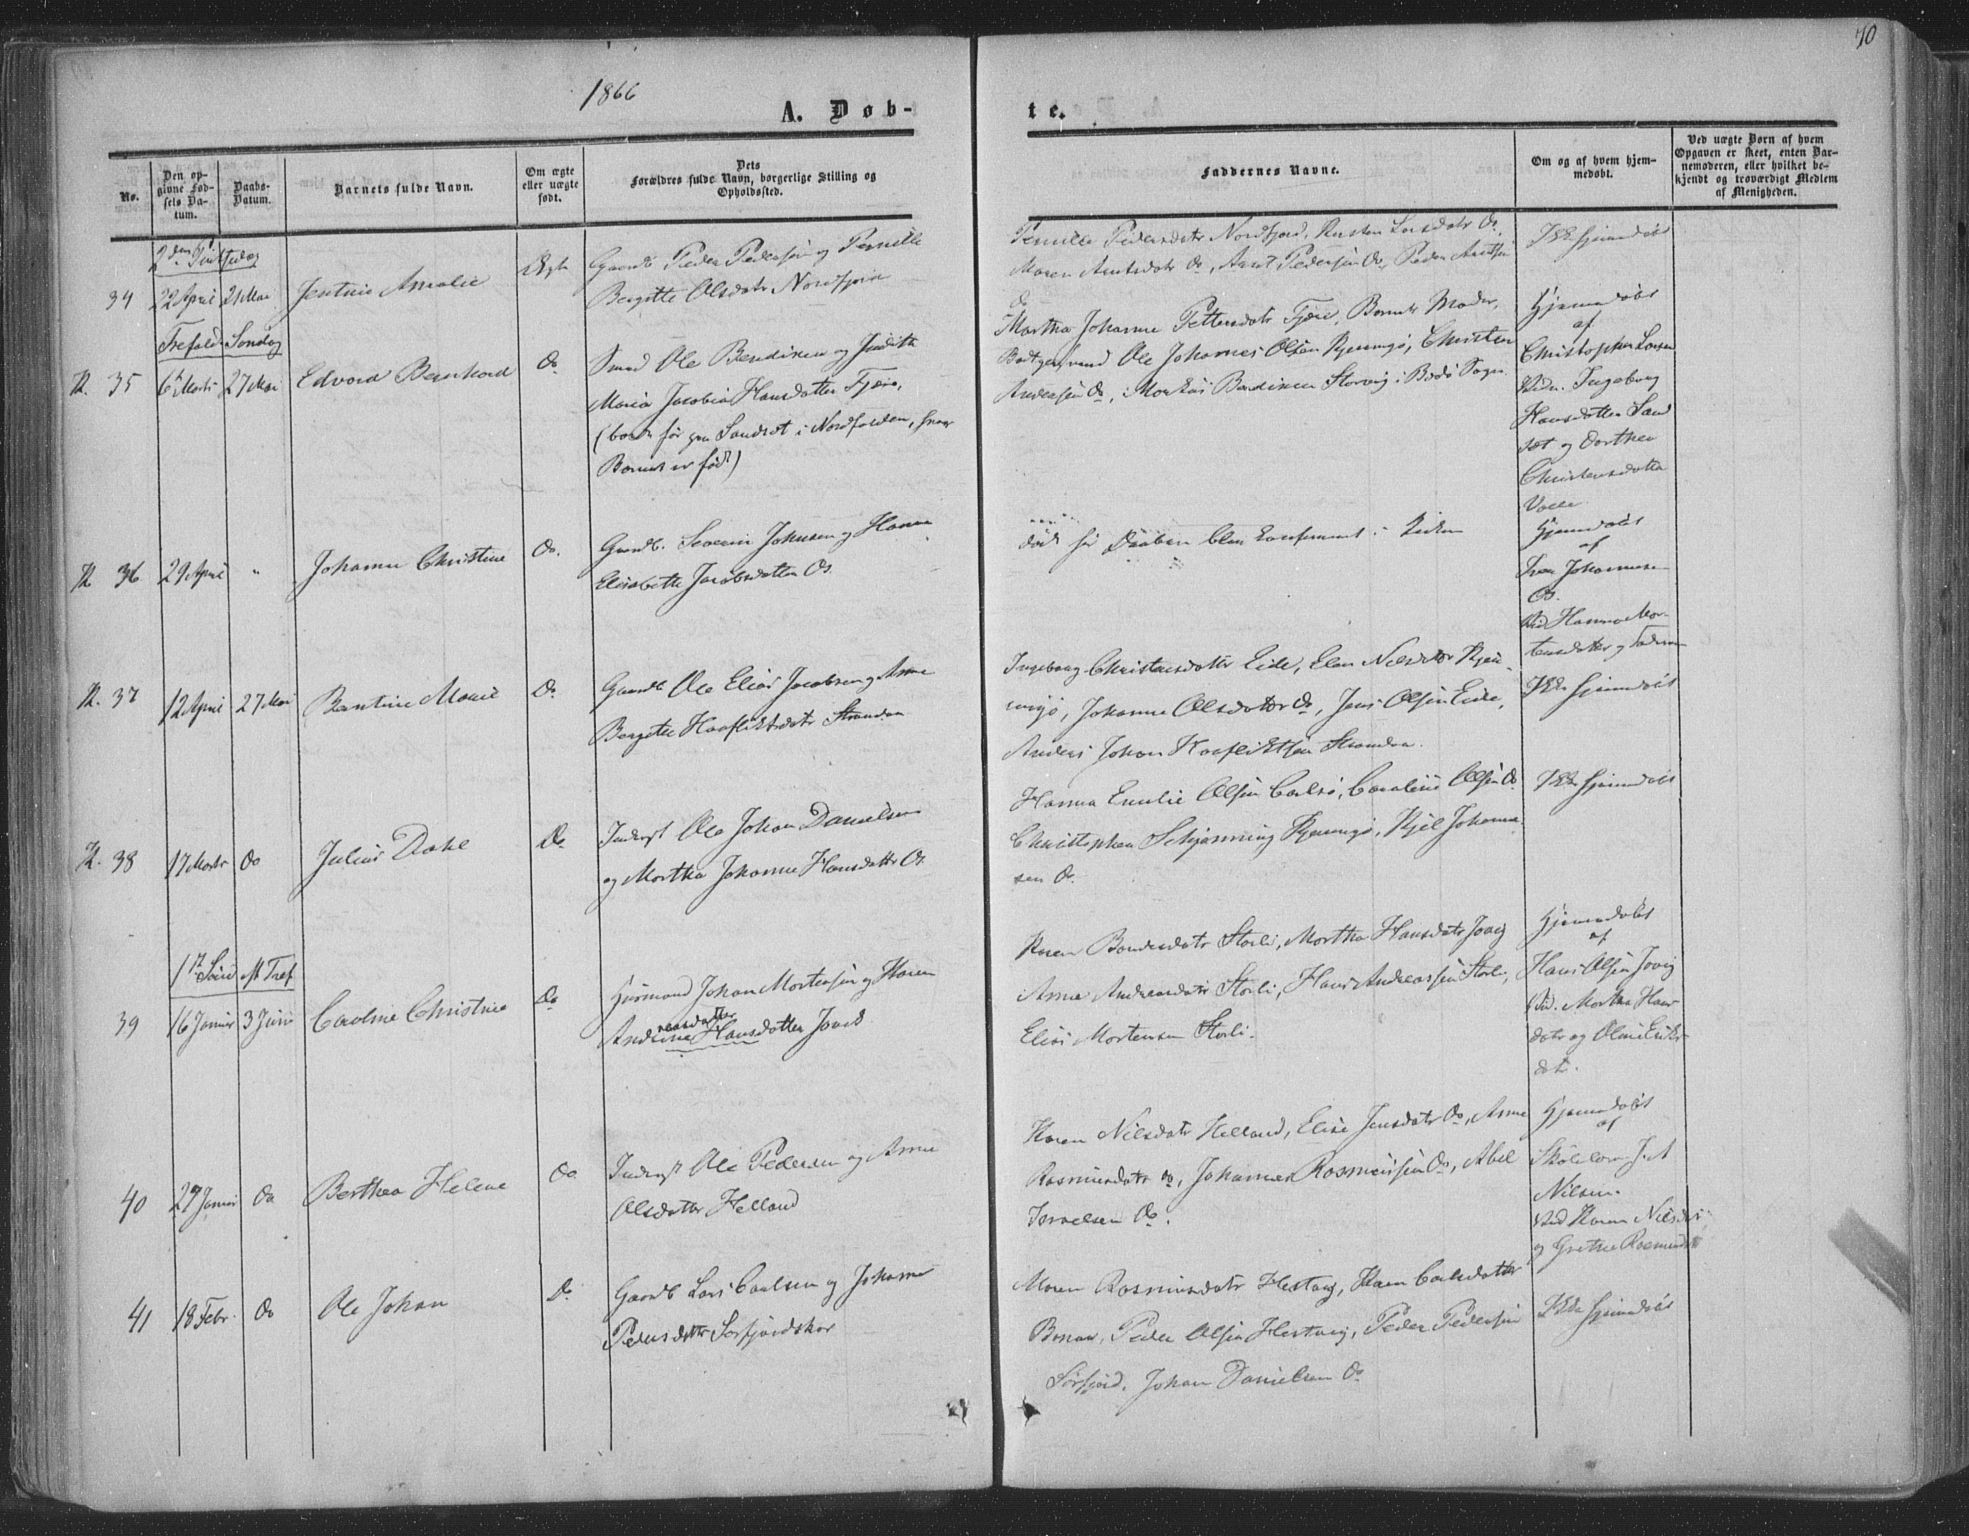 70
1866
A. Døb-
te.
No.
Den op-
givne Fød-
sels Da-
tum.
Daabs-
Datum.
Barnets fulde Navn.
Om ægte
eller uægte
født.
Dets
Forældres fulde Navn, borgerlige Stilling og
Opholdssted.
Faddernes Navne.
Om og af hvem hjem-
medøbt.
Ved uægte Børn af hvem
Opgaven er skeet, enten Bar-
nemoderen, eller hvilket be-
kjendt og troværdigt Medlem
af Menigheden.
34
22 April
21 Mai
Jentine Amalie
Ægte
Gaardb. Peder Pedersen og Pernille
Bergitte Olsdatr Nordfjord
Pernille Pedersdatr Nordfjord, Karsten Larsdatr Do,
Maren Arntsdatr Do, Arnt Pedersen Do, Peder Arntsen
Do
Ikke hjemmedøbt
Trefold. Søndag
K. 35
6 Marts
27 Mai
Edvard Bernhard
Do
Smed Ole Bendiksen og Judith
Maria Jacobia Hansdatter Fjære,
(boede før paa Sandset i Nordfolden, hvor
Barnet er født)
Martha Johanne Pettersdatr Fjære, Barnets Moder,
Ole Johannes Olsen Kjerringø, Christen
Andersen Do, Markus Bendiksen Storvig i Bodø Sogn.
Hjemmedøbt
af
Christopher Larsen
Vidn. Ingeborg
Hansdatter Sand
set og Dorthea
Christensdatter
Valle
K. 36
29 April
"
Johanna Christine
Do.
Gaardb. Severin Johnsen og Hanna
Elisabeth Jacobsdatter Os
død før Daaben blev konfirmeret i Kirken
Hjemmedøbt
af
Iver Johannesen
Os.
Vid Hanna Mor-
tensdatter og Faderen
K. 37
12 April
27 Mai
Bentine Marie
Do.
Gaardb Ole Elias Jacobsen og Anne
Bergitte Haafliktsdatr Stranden
Ingeborg Christensdatter Eide, Elen Nilsdatter Kjer-
ringø, Johanna Olsdatter Do, Jens Olsen Eide,
Anders Johan Haafliktsen Stranden.
Ikke hjemmedøbt
K. 38
17 Marts
Do
Julius Dahl
Do
Inderst Ole Johan Danielsen
og Martha Johanna Hansdatter Os
Hanna Emilie Olsen Carlsø, Caroline Olsen Do
Christopher Schjønning Kjerringø, Kjel Johanne-
sen Do.
Ikke hjemmedøbt
1ste Sønd. e. Tref
39
16 Januar
3 Juni
Caroline Christine
Do
Husmand Johan Mortensen og Karen
Andreasdatter Hansdatter Jovik
Karen Bendesdatr Storli, Martha Hansdatr Jovig
Anne Andreasdatr Storli, Hans Andreassen Storli,
Elias Mortensen Storli.
Hjemmedøbt
af
Hans Olsen Jovig
Vid. Martha Hans-
datr og Oline Eriks-
datr.
40
29 Januar
Do
Berthea Helene
Do
Inderst Ole Pedersen og Anne
Olsdatter Helland
Karen Nilsdatr Helland, Elise Jensdatr Do, Anne
Rasmusdatr Do, Johannes Rasmussen Do, Abel
Israelsen Do.
Hjemmedøbt
af
Skolelærer J. A
Nilsen.
Vid Karen Nilsdatr
og Grethe Rasmusdatr
41
18 Febr.
Do
Ole Johan
Do
Gaardb Lars Carlsen og Johanna
Pedersdatter Sørfjordskar
Maren Rasmusdatr Hestvig, Karen Carlsdatter
Bonaa, Peder Olsen Hestvig, Peder Pedersen
Sørfjord, Johan Danielsen Do
Ikke hjemmedøbt